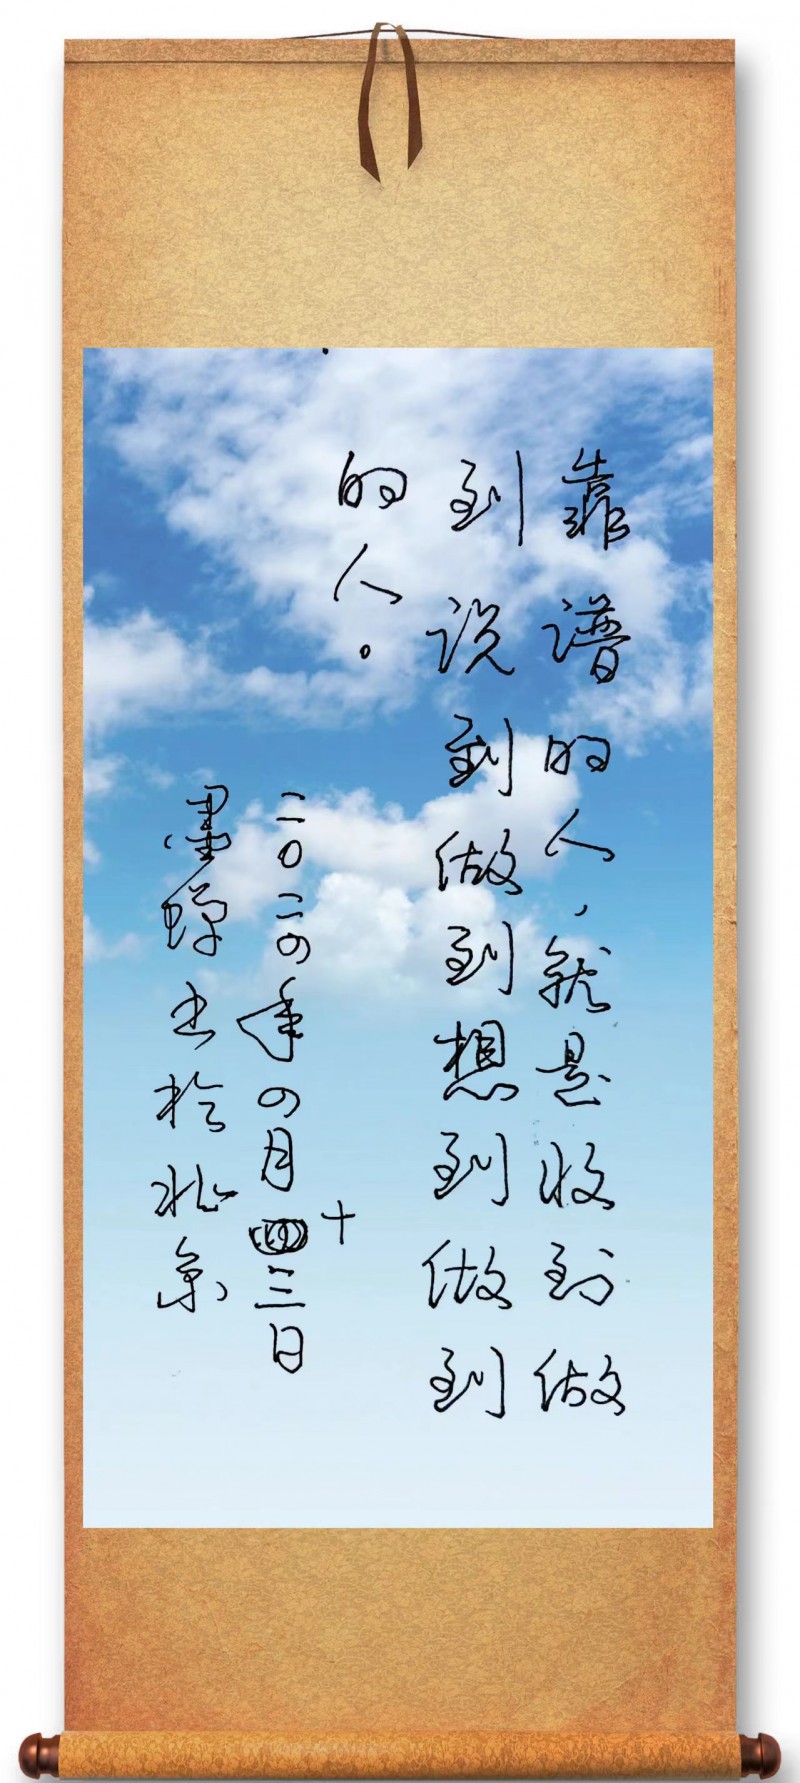 靠谱的人，就是收到做
到说到做到想到做到
的人。
二〇二四年四月十三日
墨蝉书於北京